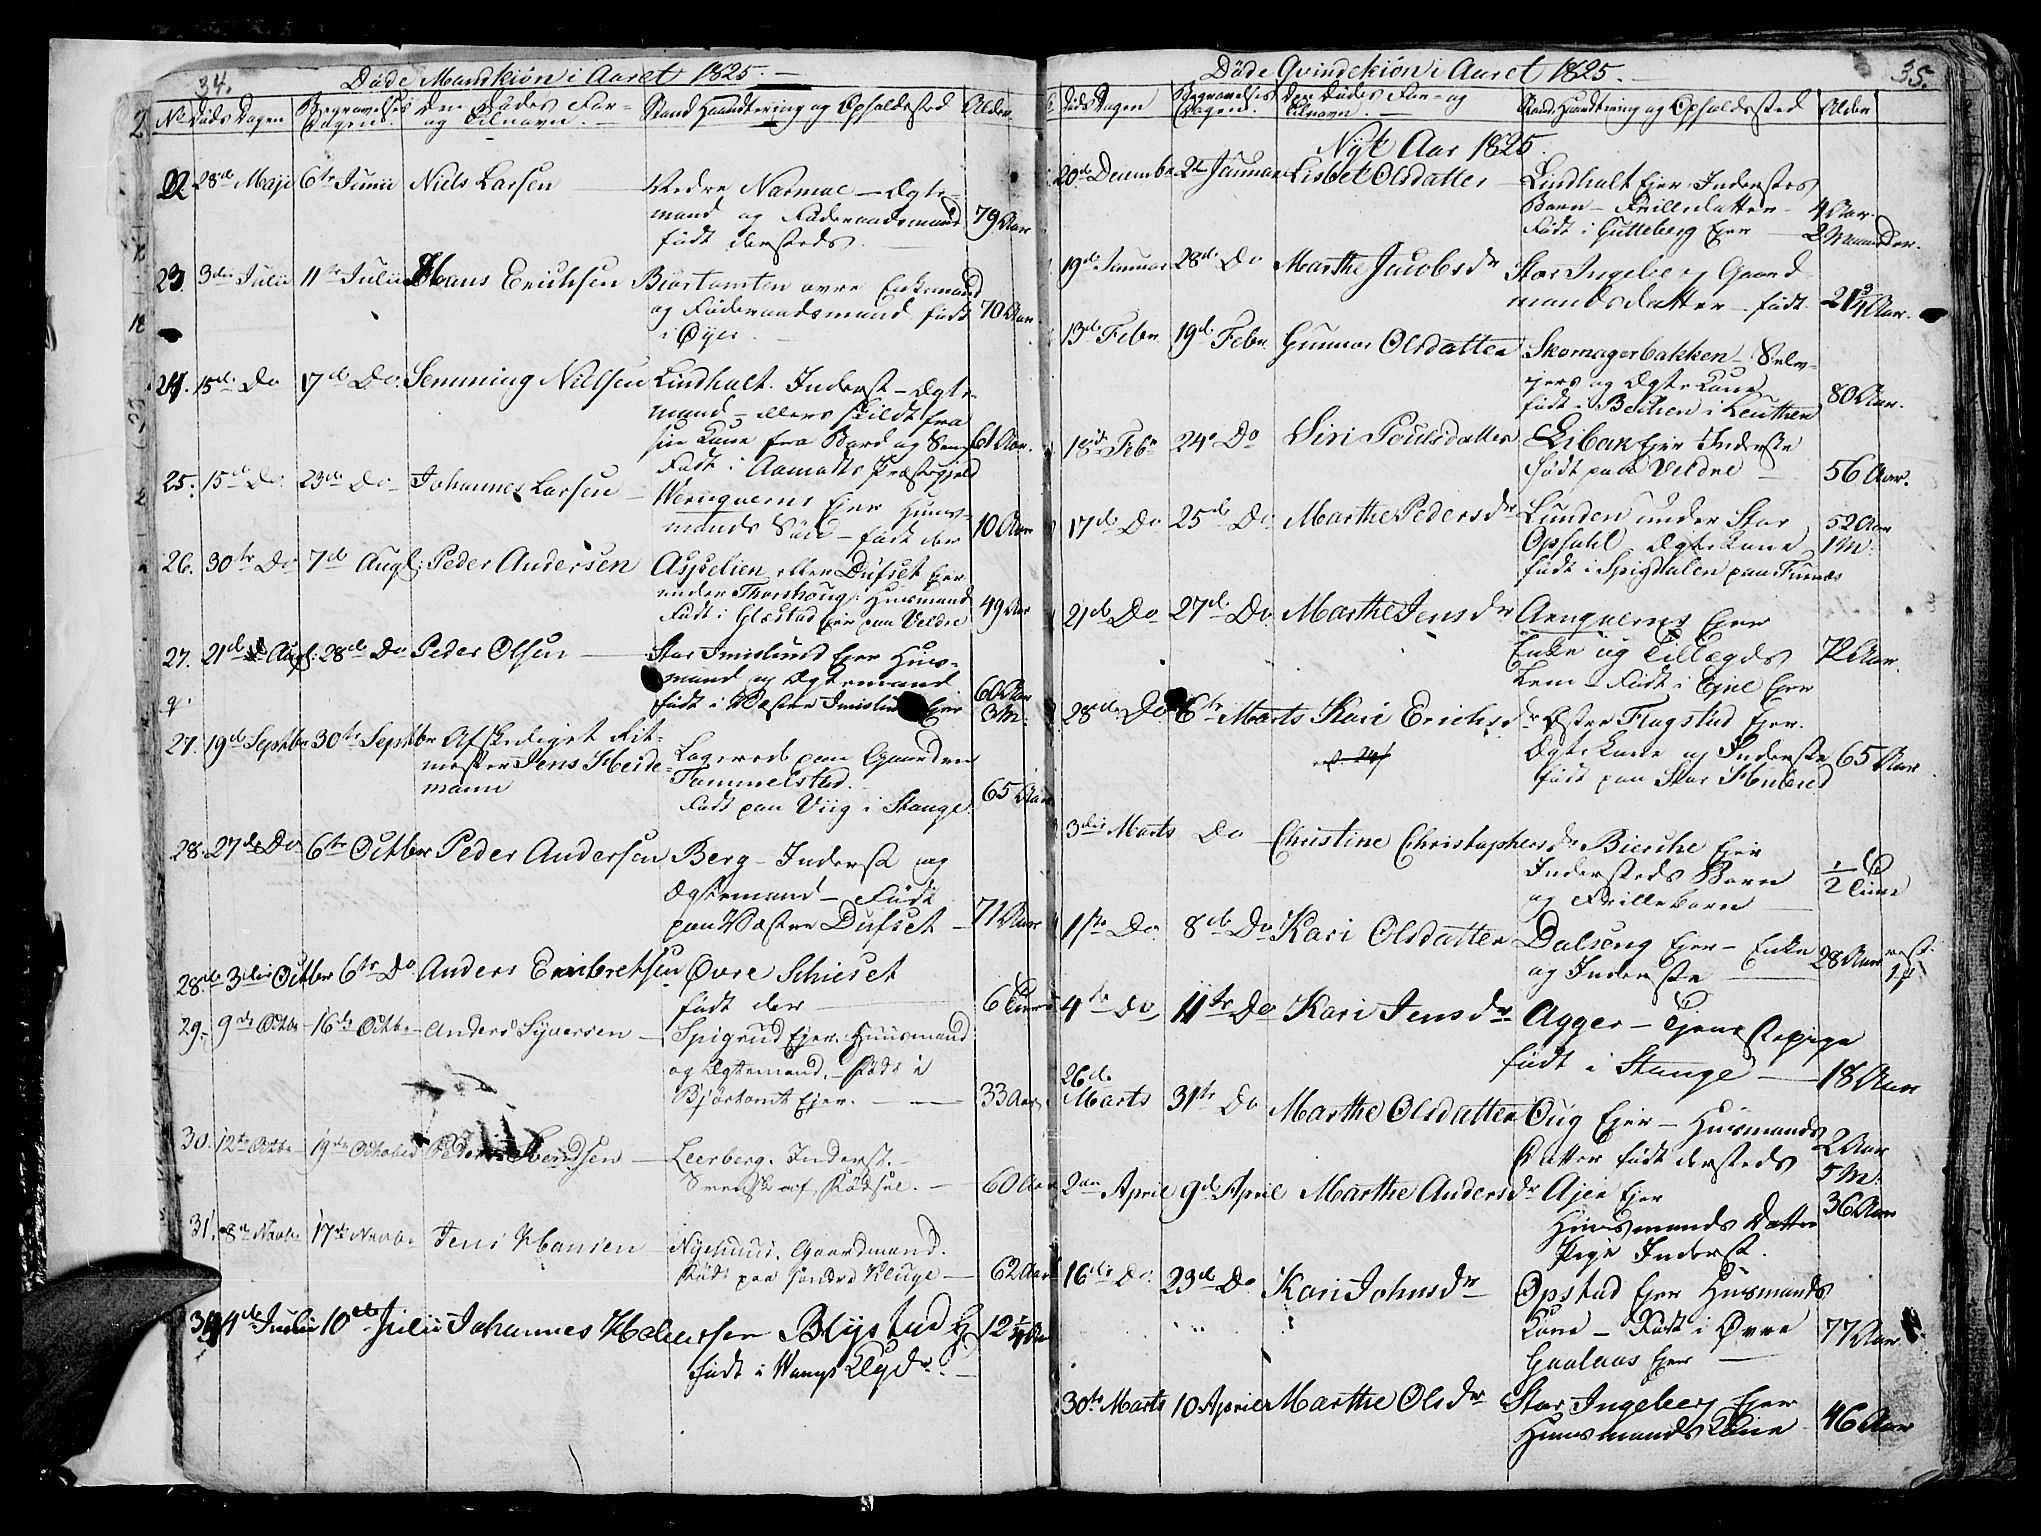 34.
Døde Mandkiøn i Aaret 1825.
No Døds Dagen Begravelses Dagen. Den Dødes For- og Tilnavn. Stand Haandtering og Opholdssted Alder.
22 28de Maji 6te Junii Niels Larsen Vedre Narmoe - Ægte-
mand og Føderaadsmand 79 Aar
født dersteds.
23. 3die Julii 11te Julii Hans Erichsen Biørtomten øvre Enkemand
og Føderaadsmand født 70 Aar
i Øyer
24. 15de Do 17de Do Semming Nielsen Lindholt. Inderst - Ægte-
mand - ellers skildt fra
sin Kone fra Bord og Seng 61 Aar.
Født i Aamodts Præstegjeld
25. 15de Do 23de Do Johannes Larsen
Ejer Huus-
mands Søn - født der 10 Aar
26. 30te Do 7de Augl: Peder Andersen Aspelien eller Dufset Ejer
under Thorshoug: Huusmand
Født i Glæstad Ejer paa Veldre 49 Aar
27. 21de Augl: 28de Do Peder Olsen Stor Imislund Ejer Huus-
mand og Ægtemand
født i Væstre Imislund Ejer 60 Aar
3 M:
27. 19de Septbr 30te Septbr Afskediget Rit-
mester Jens Heide-
mann
Logerede paa Gaarden
Tommelstad.
Født paa Viig i Stange. 65 Aar
28. 27de Do 6te Octbr Peder Andersen Berg - Inderst og
Ægtemand - Født
paa Væstre Dufset - 71 Aar
28.de 3die Octbr 6te Do Anders Embretsen Øvre Schieset
født der 6 Timer
29. 9de Octbr 16de Octbr Anders Syversen Spigrud Ejer. Huusmand
og Ægtemand. - Født i
Bjørtomt Ejer. - 33 Aar
30. 12te Octbr 19de Octobed Peder Svendsen Leerberg. Inderst. -
Svensk af Fødsel. - 60 Aar
31. 8de Novbr 17de Novbr Jens Hansen Nyelund. Gaardmand.
Født paa Søndre Kluge - 62 Aar
4de Julii 10de Julii Johannes Halversen Blystad 12 1/4 Aar
født i Wangs
35.
Døde Qvindekiøn i Aaret 1825.
Døds Dagen Begravelses Dagen. Den Dødes For- og Tilnavn. Stand Haandtering og Opholdssted Alder
Nyt Aar 1825.
20de Decembr 2den Januar Lisbet Olsdatter Lindholt Ejer Inderstes
Barn - Frilledatter - 4 Aar.
Født i Gutteberg Ejer 2 Maaneder.
19de Januar 28de Do Marthe Jacobsdr Stor Ingeberg Gaard-
mandsdatter - født 21 3/4 Aar.
13de Febr 19de Febr Gunnor Olsdatter Skomagerbakken - Selv-
ejers og Ægte Kone
født i Bechen i Leuthen 80 Aar.
18de Febr 24de Do Siri Poulsdatter Libak Ejer Inderste
født paa Veldre 56 Aar.
17de Do 25de Do Marthe Pedersdr Lunden under Stor 52 Aar
Opsahl Ægte Kone 1 M:
født i Spigdalen paa Furnæs
21de Do 27de Do Marthe Jensdr Arnqværns Ejer
Enke og Tillægds 72 Aar.
Lem - Født i Ejer
28de Do 6te Marts Kari Erichsdr Østre Flagstad Ejer.
Ægte Kone og Inderste 65 Aar
født paa Stor Stenbred
3die Marts Do Christine Christophersdr Bierche Ejer
Indersteds Barn
og Frillebarn 1/2 Time
1ste Do 8de Do Kari Olsdatter Dalseng Ejer - Enke 28 Aar
og Inderste
4de Do 11te Do Kari Jensdr Agger - Tjenestepige
født i Stange 18 Aar
26de
Marts 31te Do Marthe Olsdatter Oug Ejer - Huusmands
Datter født dersteds 2 Aar
5 M:
2den April 9de April Marthe Andersdr Ajer Ejer 36 Aar
Huusmands Datter
Pige Inderst.
16de Do 23de Do Kari Johnsdr Opstad Ejer Huusmands
Kone - Født i Øvre 77 Aar
Gaalaas Ejer
30te Marts 10 April Marthe Olsdr Stor Ingeberg Ejer
Huusmands Kone 46 Aar